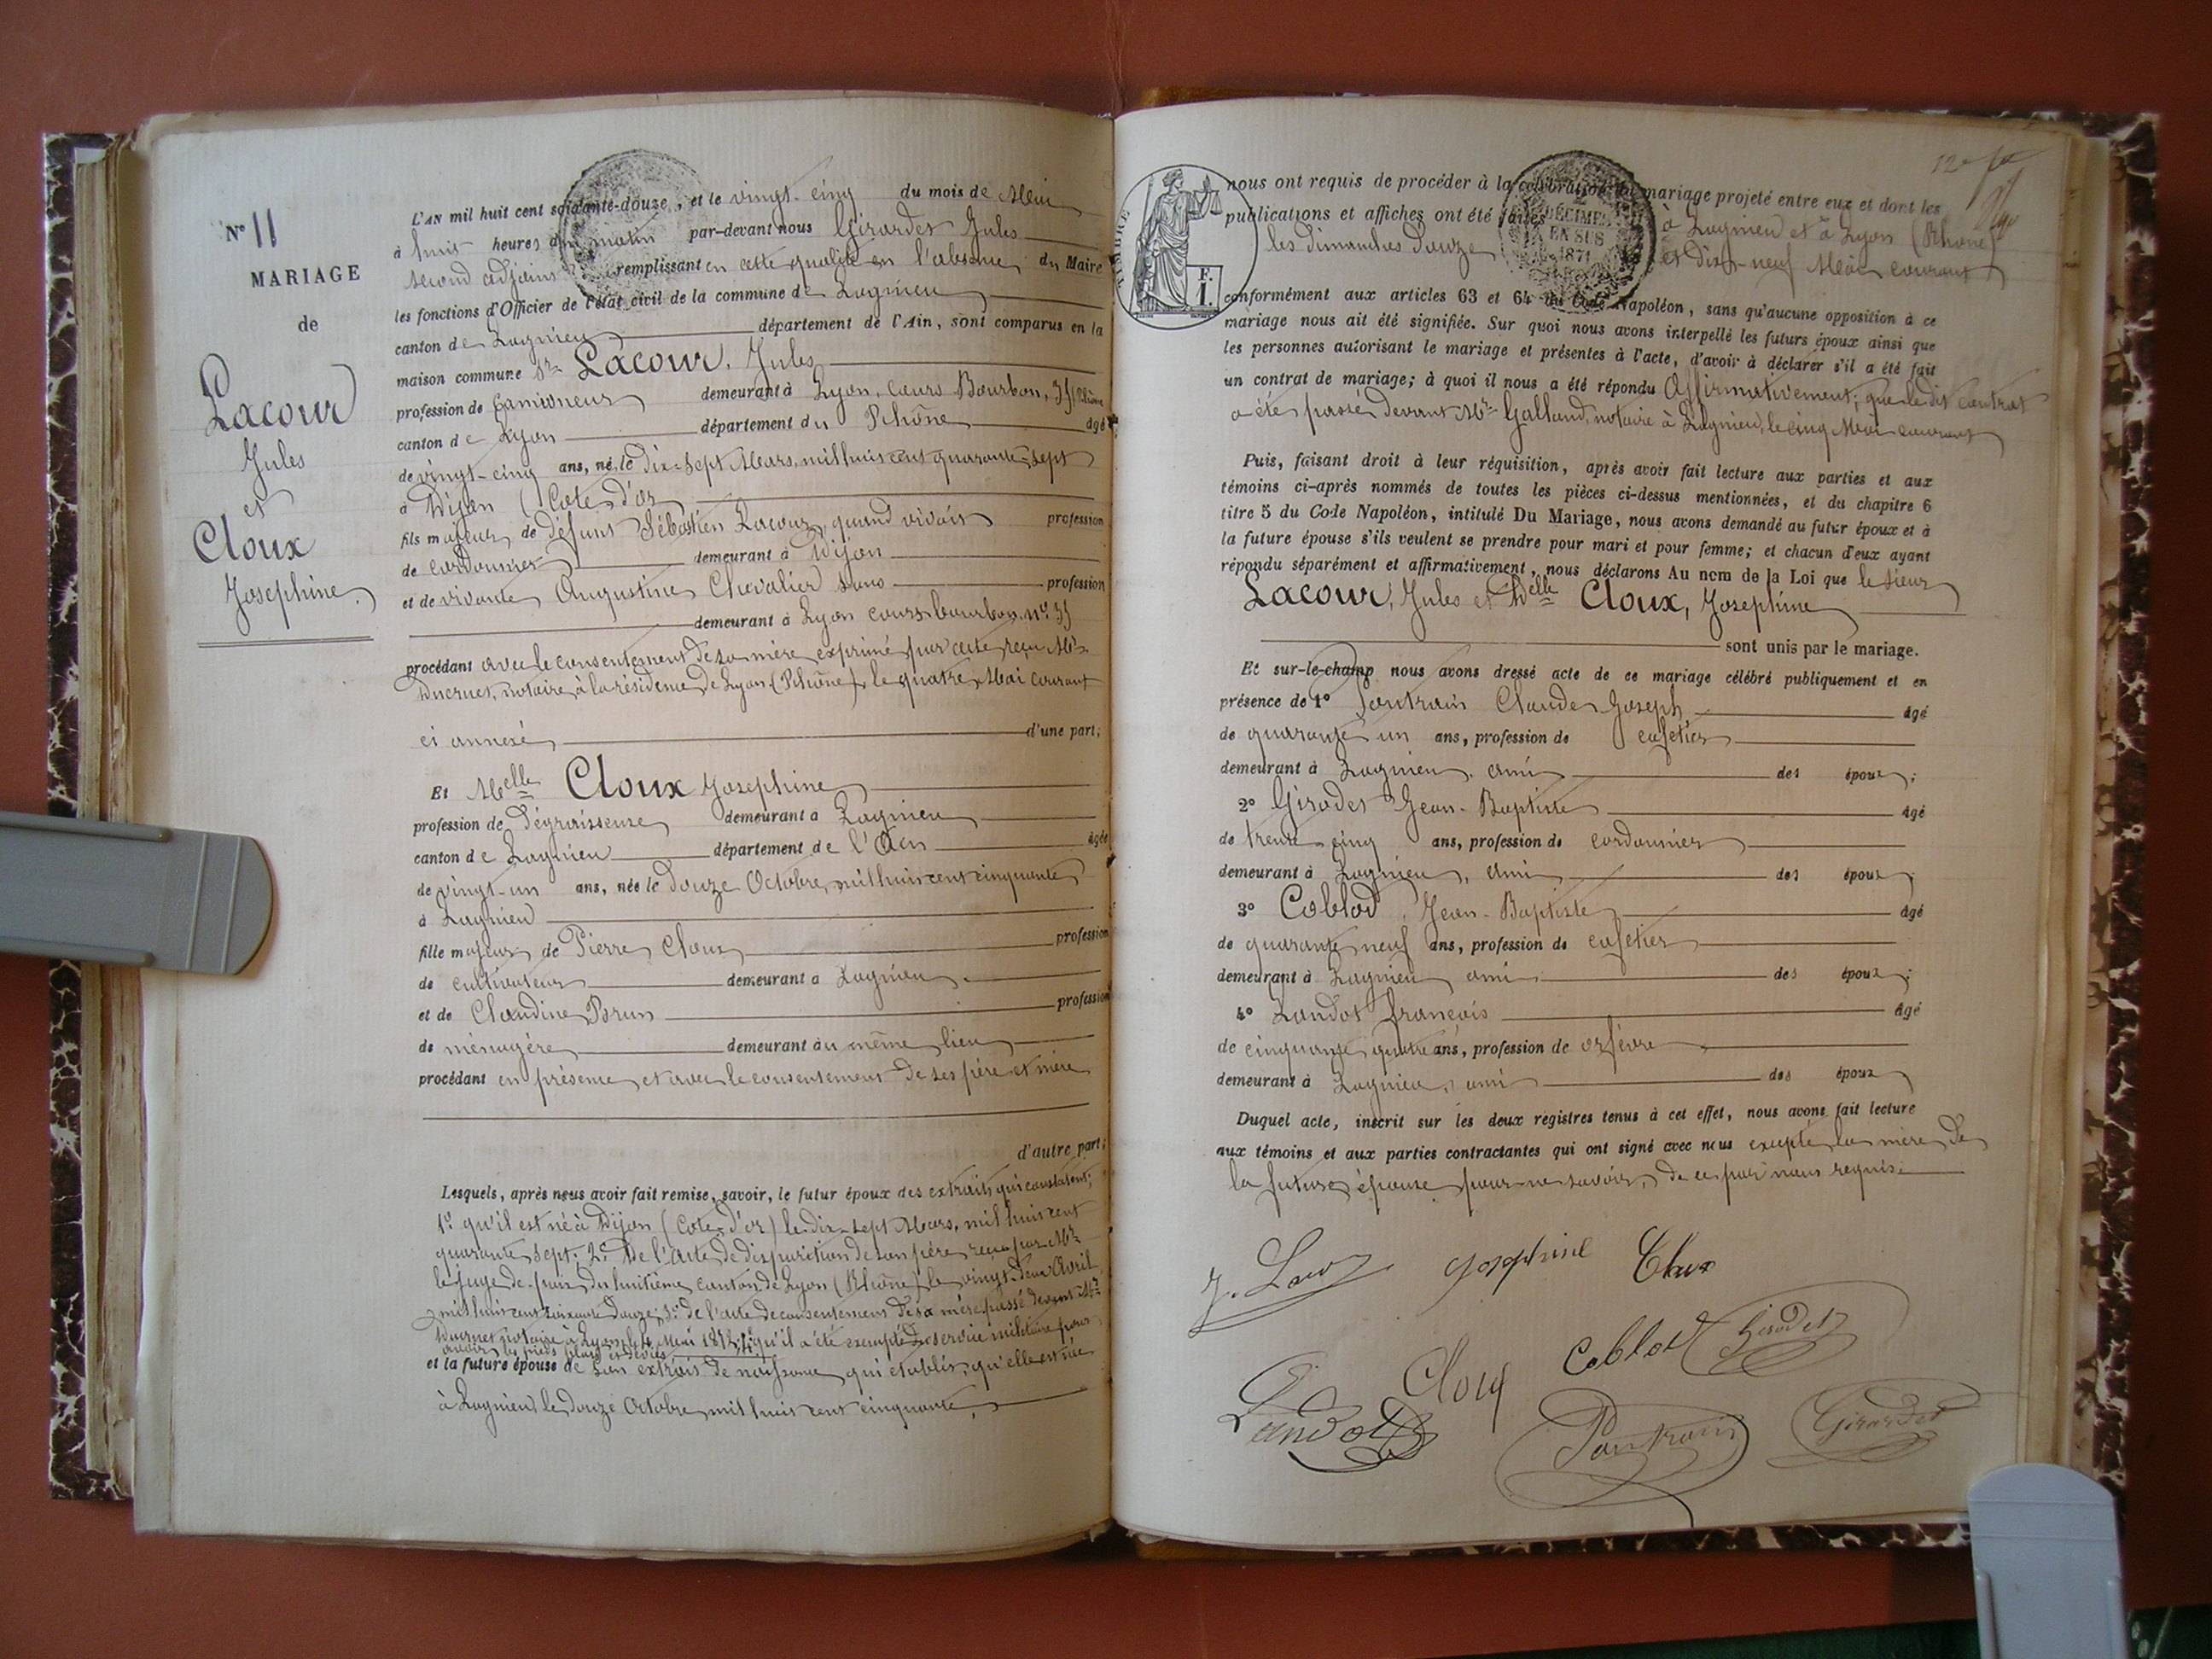 N° 11
MARIAGE
de
Lacour
Jules
et
Cloux
Josephine.
L'AN mil huit cent soixante-douze, et le vingt-cinq du mois de Mai
à huit heures du matin par-devant nous Girardet Jules
second adjoint remplissant en cette qualité en l'absence du Maire
les fonctions d'Officier de l'état civil de la commune de Lagnieu
canton de Lagnieu département de l'Ain, sont comparus en la
maison commune Sr Lacour, Jules
profession de Camioneur demeurant à Lyon, cours Bourbon, 35
canton de Lyon département du Rhône âgé
de vingt-cinq ans, né le dix-sept Mars, mil huit cent quarante-sept
à Dijon (Cote d'or
fils majeur de défunt Sébastien Lacour, quand vivait profession
de cordonnier demeurant à Dijon
et de vivante Augustine Chevalier sans profession
demeurant à Lyon cours bourbon n° 35
procédant avec le consentement de sa mère exprimé par acte reçu Mr
Ducruet, notaire à la résidence de Lyon (Rhône) le quatre Mai courant
ci annexé d'une part;
Et Melle Cloux Josephine
profession de Dégraisseuse demeurant à Lagnieu
canton de Lagnieu département de l'Ain âgée
de vingt-un ans, née le douze Octobre, mil huit cent cinquante
à Lagnieu
fille majeure de Pierre Cloux profession
de cultivateur demeurant à Lagnieu
et de Claudine Brun profession
de ménagère demeurant au même lieu
procédant en présence et avec le consentement de ses père et mère
d'autre part;
Lesquels, après nous avoir fait remise, savoir, le futur époux des extraits qui constatent;
1° qu'il est né à Dijon (Cote d'or) le dix-sept Mars, mil huit cent
quarante sept. 2° De l'acte de disparition de son père reçu par Mr
le juge de paix du huitième canton de Lyon (Rhône) le vingt deux Avril
mil huit cent soixante douze; 3° de l'acte de consentement de sa mère passé devant Mr
Ducruet notaire à Lyon le 4 Mai 1872; 4° qu'il a été exempté du service militaire pour
avoir les pieds
et la future épouse de Son extrait de naissance qui établit, qu'elle est née
à Lagnieu le douze Octobre mil huit cent cinquante,
nous ont requis de procéder à la célébration du mariage projeté entre eux et dont les
publications et affiches ont été faites à Lagnieu et à Lyon (Rhône)
les dimanches douze et dix-neuf Mai courant
conformément aux articles 63 et 64 du Code Napoléon, sans qu'aucune opposition à ce
mariage nous ait été signifiée. Sur quoi nous avons interpellé les futurs époux ainsi que
les personnes autorisant le mariage et présentes à l'acte, d'avoir à déclarer s'il a été fait
un contrat de mariage; à quoi il nous a été répondu Affirmativement; que le dit contrat
a été passé devant Mr Galland, notaire à Lagnieu, le cinq Mai courant
Puis, faisant droit à leur réquisition, après avoir fait lecture aux parties et aux
témoins ci-après nommés de toutes les pièces ci-dessus mentionnées, et du chapitre 6
titre 5 du Code Napoléon, intitulé Du Mariage, nous avons demandé au futur époux et à
la future épouse s'ils veulent se prendre pour mari et pour femme; et chacun d'eux ayant
répondu séparément et affirmativement, nous déclarons Au nom de la Loi que le sieur
Lacour, Jules et Delle Cloux, Josephine
sont unis par le mariage.
Et sur-le-champ nous avons dressé acte de ce mariage célébré publiquement et en
présence de 1° Pantrain Claude Joseph âgé
de quarante un ans, profession de cafetier
demeurant à Lagnieu, ami des époux;
2° Girodet Jean-Baptiste âgé
de trente cinq ans, profession de cordonnier
demeurant à Lagnieu, ami des époux;
3° Coblod, Jean-Baptiste âgé
de quarante neuf ans, profession de cafetier
demeurant à Lagnieu ami des époux;
4° Landot françois âgé
de cinquante quatre ans, profession de orfèvre
demeurant à Lagnieu, ami des époux
Duquel acte, inscrit sur les deux registres tenus à cet effet, nous avons fait lecture
aux témoins et aux parties contractantes qui ont signé avec nous excepté la mère de
la future épouse pour ne savoir, de ce par nous requis.
Josephine Cloux
Coblod Girodet
Landot Pantrain Girardet
DÉCIMES
EN SUS
1871
TIMBRE